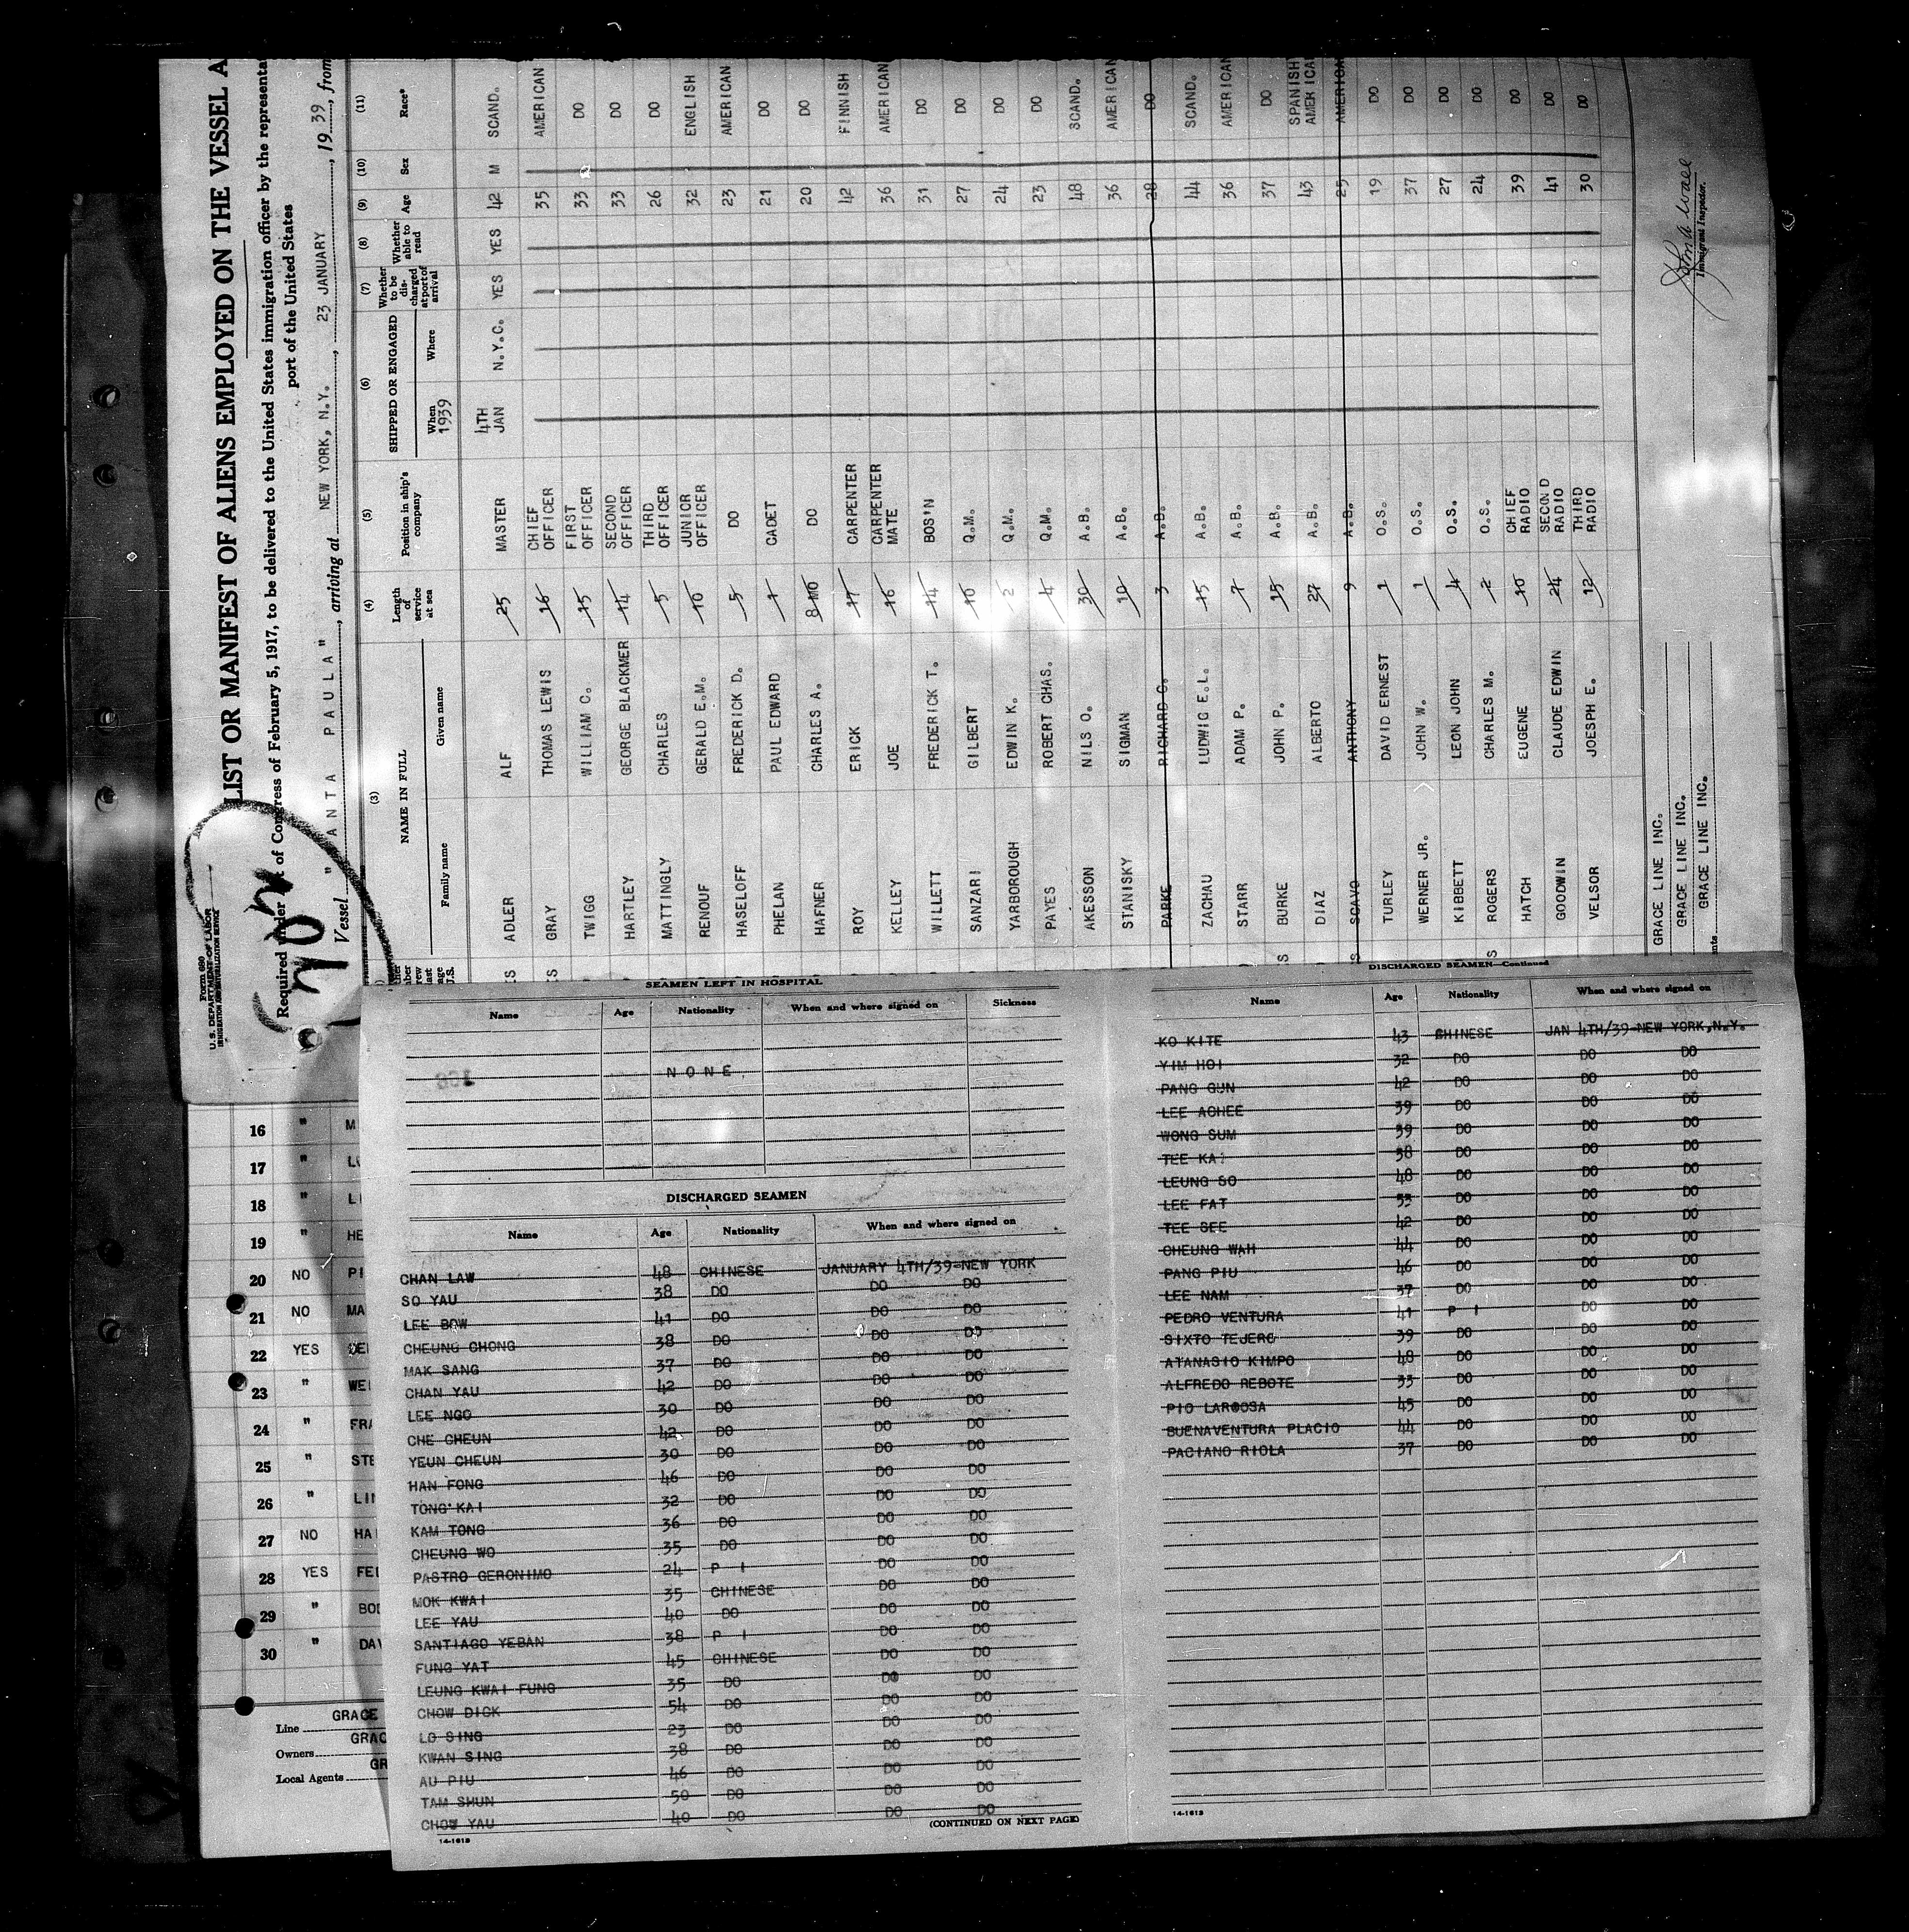 Form 680
U. S. DEPARTMENT OF LABOR
IMMIGRATION AND NATURALIZATION SERVICE
LIST OR MANIFEST OF ALIENS EMPLOYED ON THE VESSEL A
Required under Act of Congress of February 5, 1917, to be delivered to the United States immigration officer by the representa
port of the United States
Vessel "SANTA PAULA", arriving at NEW YORK, N.Y., 23 JANUARY, 19 39, from
(3) (4) (5) (6) (7) (8) (9) (10) (11)
NAME IN FULL Length of service at sea Position in ship's company SHIPPED OR ENGAGED Whether to be discharged at port of arrival Whether able to read Age Sex Race*
Family name Given name When 1939 Where
ADLER ALF 25 MASTER 4TH JAN N.Y.C. YES YES 42 M SCAND.
GRAY THOMAS LEWIS 16 CHIEF OFFICER 35 AMERICAN
TWIGG WILLIAM C. 15 FIRST OFFICER 33 DO
HARTLEY GEORGE BLACKMER 14 SECOND OFFICER 33 DO
MATTINGLY CHARLES 5 THIRD OFFICER 26 DO
RENOUF GERALD E.M. 10 JUNIOR OFFICER 32 ENGLISH
HASELOFF FREDERICK D. 5 DO 23 AMERICAN
PHELAN PAUL EDWARD 1 CADET 21 DO
HAFNER CHARLES A. 8 MO DO 20 DO
ROY ERICK 17 CARPENTER 42 FINNISH
KELLEY JOE 16 CARPENTER MATE 36 AMERICAN
WILLETT FREDERICK T. 14 BOS'N 31 DO
SANZARI GILBERT 10 Q.M. 27 DO
YARBOROUGH EDWIN K. 2 Q.M. 24 DO
PAYES ROBERT CHAS. 4 Q.M. 23 DO
AKESSON NILS O. 30 A.B. 48 SCAND.
STANISKY SIGMAN 10 A.B. 36 AMERICAN
PARKE RICHARD C. 3 A.B. 28 DO
ZACHAU LUDWIG E.L. 15 A.B. 44 SCAND.
STARR ADAM P. 7 A.B. 36 AMERICAN
BURKE JOHN P. 15 A.B. 37 DO
DIAZ ALBERTO 27 A.B. 43 SPANISH AMERICAN
SCAVO ANTHONY 9 A.B. 25 AMERICAN
TURLEY DAVID ERNEST 1 O.S. 19 DO
WERNER JR. JOHN W. 1 O.S. 37 DO
KIBBETT LEON JOHN 4 O.S. 27 DO
ROGERS CHARLES M. 2 O.S. 24 DO
HATCH EUGENE 10 CHIEF RADIO 39 DO
GOODWIN CLAUDE EDWIN 24 SECOND RADIO 41 DO
VELSOR JOESPH E. 12 THIRD RADIO 30 DO
GRACE LINE INC.
GRACE LINE INC.
GRACE LINE INC.
Immigrant Inspector.
16 " M
17 "
18 " LI
19 " HE
20 NO PI
21 NO MA
22 YES
23 " WEI
24 " FRA
25 " STE
26 " LIN
27 NO HA
28 YES FEI
29 " BOI
30 " DAV
Line GRACE
Owners GRAC
Local Agents GR
SEAMEN LEFT IN HOSPITAL
Name Age Nationality When and where signed on Sickness
NONE
DISCHARGED SEAMEN
Name Age Nationality When and where signed on
CHAN LAW 48 CHINESE JANUARY 4TH/39-NEW YORK
SO YAU 38 DO DO DO
LEE BOW 41 DO DO DO
CHEUNG CHONG 38 DO DO DO
MAK SANG 37 DO DO DO
CHAN YAU 42 DO DO DO
LEE NGO 30 DO DO DO
CHE CHEUN 42 DO DO DO
YEUN CHEUN 30 DO DO DO
HAN FONG 46 DO DO DO
TONG KAI 32 DO DO DO
KAM TONG 36 DO DO DO
CHEUNG WO 35 DO DO DO
PASTRO GERONIMO 24 P I DO DO
MOK KWAI 35 CHINESE DO DO
LEE YAU 40 DO DO DO
SANTIAGO YEBAN 38 P I DO DO
FUNG YAT 45 CHINESE DO DO
LEUNG KWAI FUNG 35 DO DO DO
CHOW DICK 54 DO DO DO
LO SING 23 DO DO DO
KWAN SING 38 DO DO DO
AU PIU 46 DO DO DO
TAM SHUN 50 DO DO DO
CHOW YAU 40 DO DO DO
(CONTINUED ON NEXT PAGE)
14-1613
DISCHARGED SEAMEN—Continued
Name Age Nationality When and where signed on
KO KITE 43 CHINESE JAN 4TH/39-NEW YORK,N.Y.
YIM HOI 32 DO DO DO
PANG GUN 42 DO DO DO
LEE ACHEE 39 DO DO DO
WONG SUM 39 DO DO DO
TEE KAI 38 DO DO DO
LEUNG SO 48 DO DO DO
LEE FAT 53 DO DO DO
TEE SEE 42 DO DO DO
CHEUNG WAH 44 DO DO DO
PANG PIU 46 DO DO DO
LEE NAM 37 DO DO DO
PEDRO VENTURA 41 P I DO DO
SIXTO TEJERO 39 DO DO DO
ATANASIO KIMPO 48 DO DO DO
ALFREDO REBOTE 33 DO DO DO
PIO LAROOSA 45 DO DO DO
BUENAVENTURA PLACIO 44 DO DO DO
PACIANO RIOLA 37 DO DO DO
14-1613